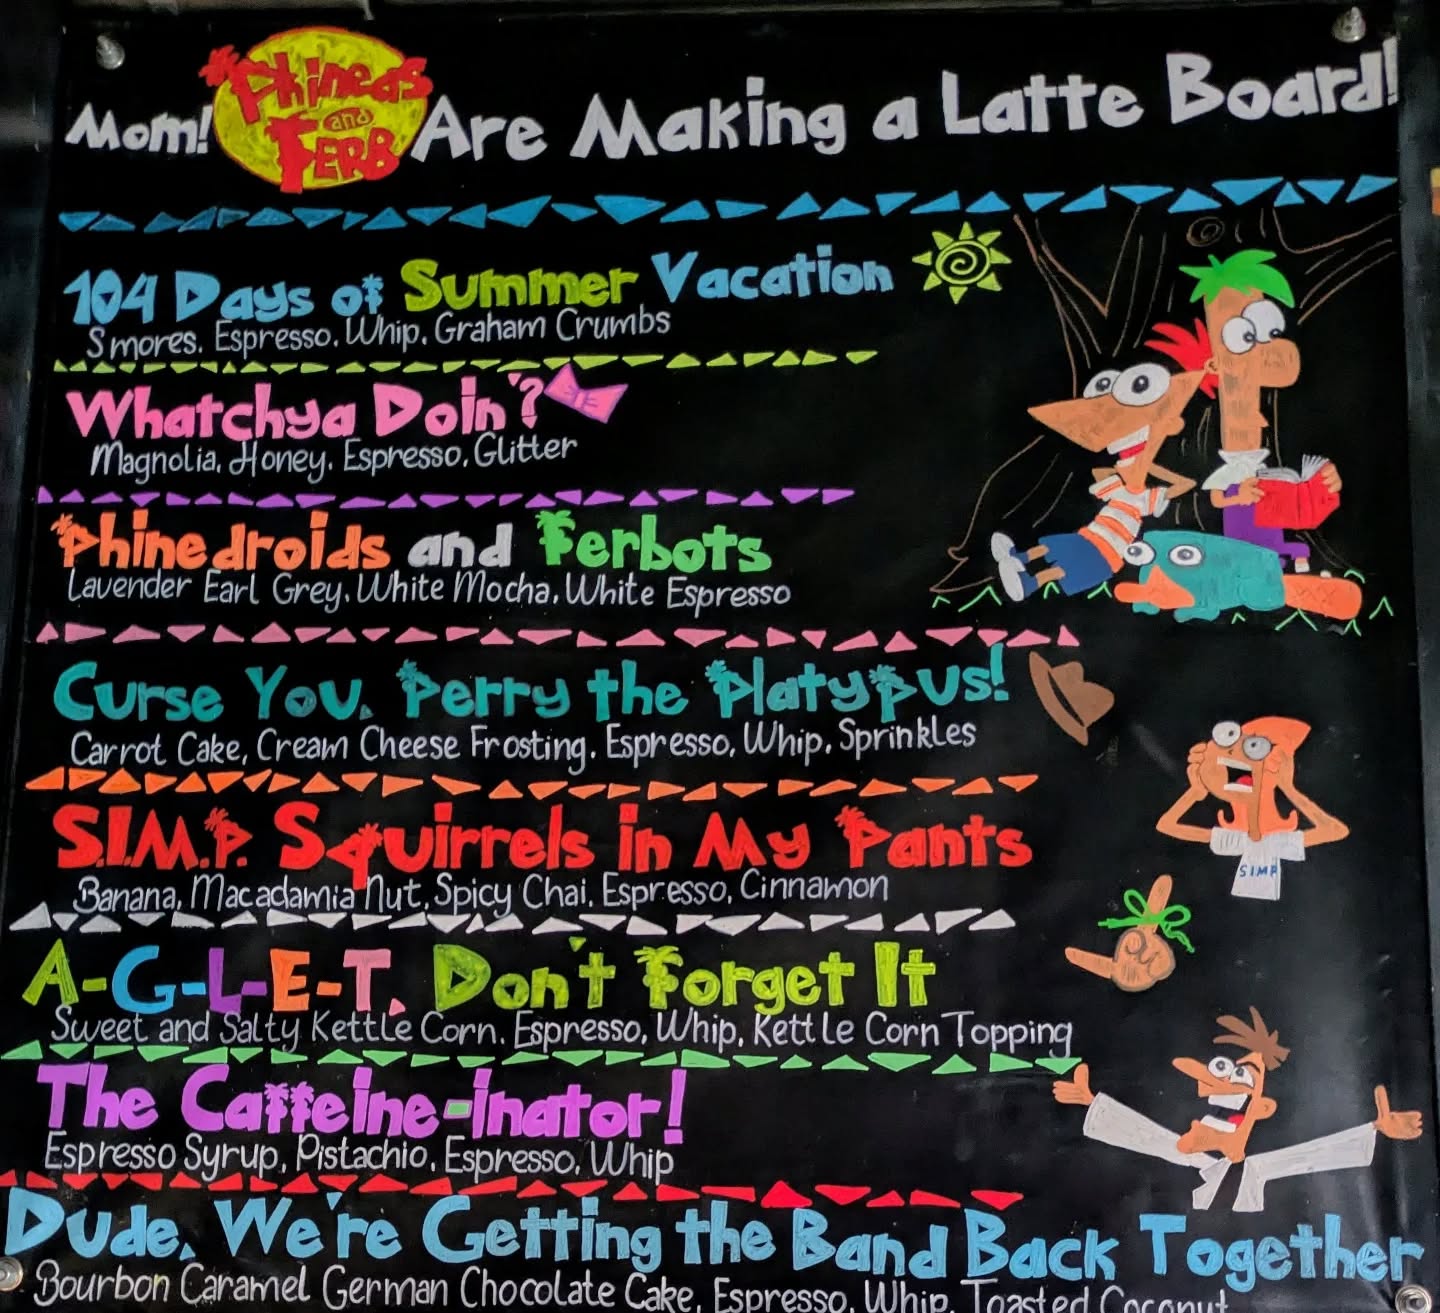 Mom! Phineas and Ferb Are Making a Latte Board!
104 Days of Summer Vacation
Smores. Espresso. Whip. Graham Crumbs
Whatchya Doin'?
Magnolia. Honey. Espresso. Glitter
Phinedroids and Ferbots
Lavender Earl Grey. White Mocha. White Espresso
Curse You, Perry the Platypus!
Carrot Cake, Cream Cheese Frosting. Espresso, Whip, Sprinkles
S.I.M.P. Squirrels in My Pants
Banana, Macadamia Nut, Spicy Chai, Espresso, Cinnamon
SIMP
A-G-L-E-T, Don't Forget It
Sweet and Salty Kettle Corn. Espresso, Whip, Kettle Corn Topping
The Caffeine-inator!
Espresso Syrup, Pistachio. Espresso, Whip
Dude, We're Getting the Band Back Together
Bourbon Caramel German Chocolate Cake, Espresso, Whip, Toasted Coconut